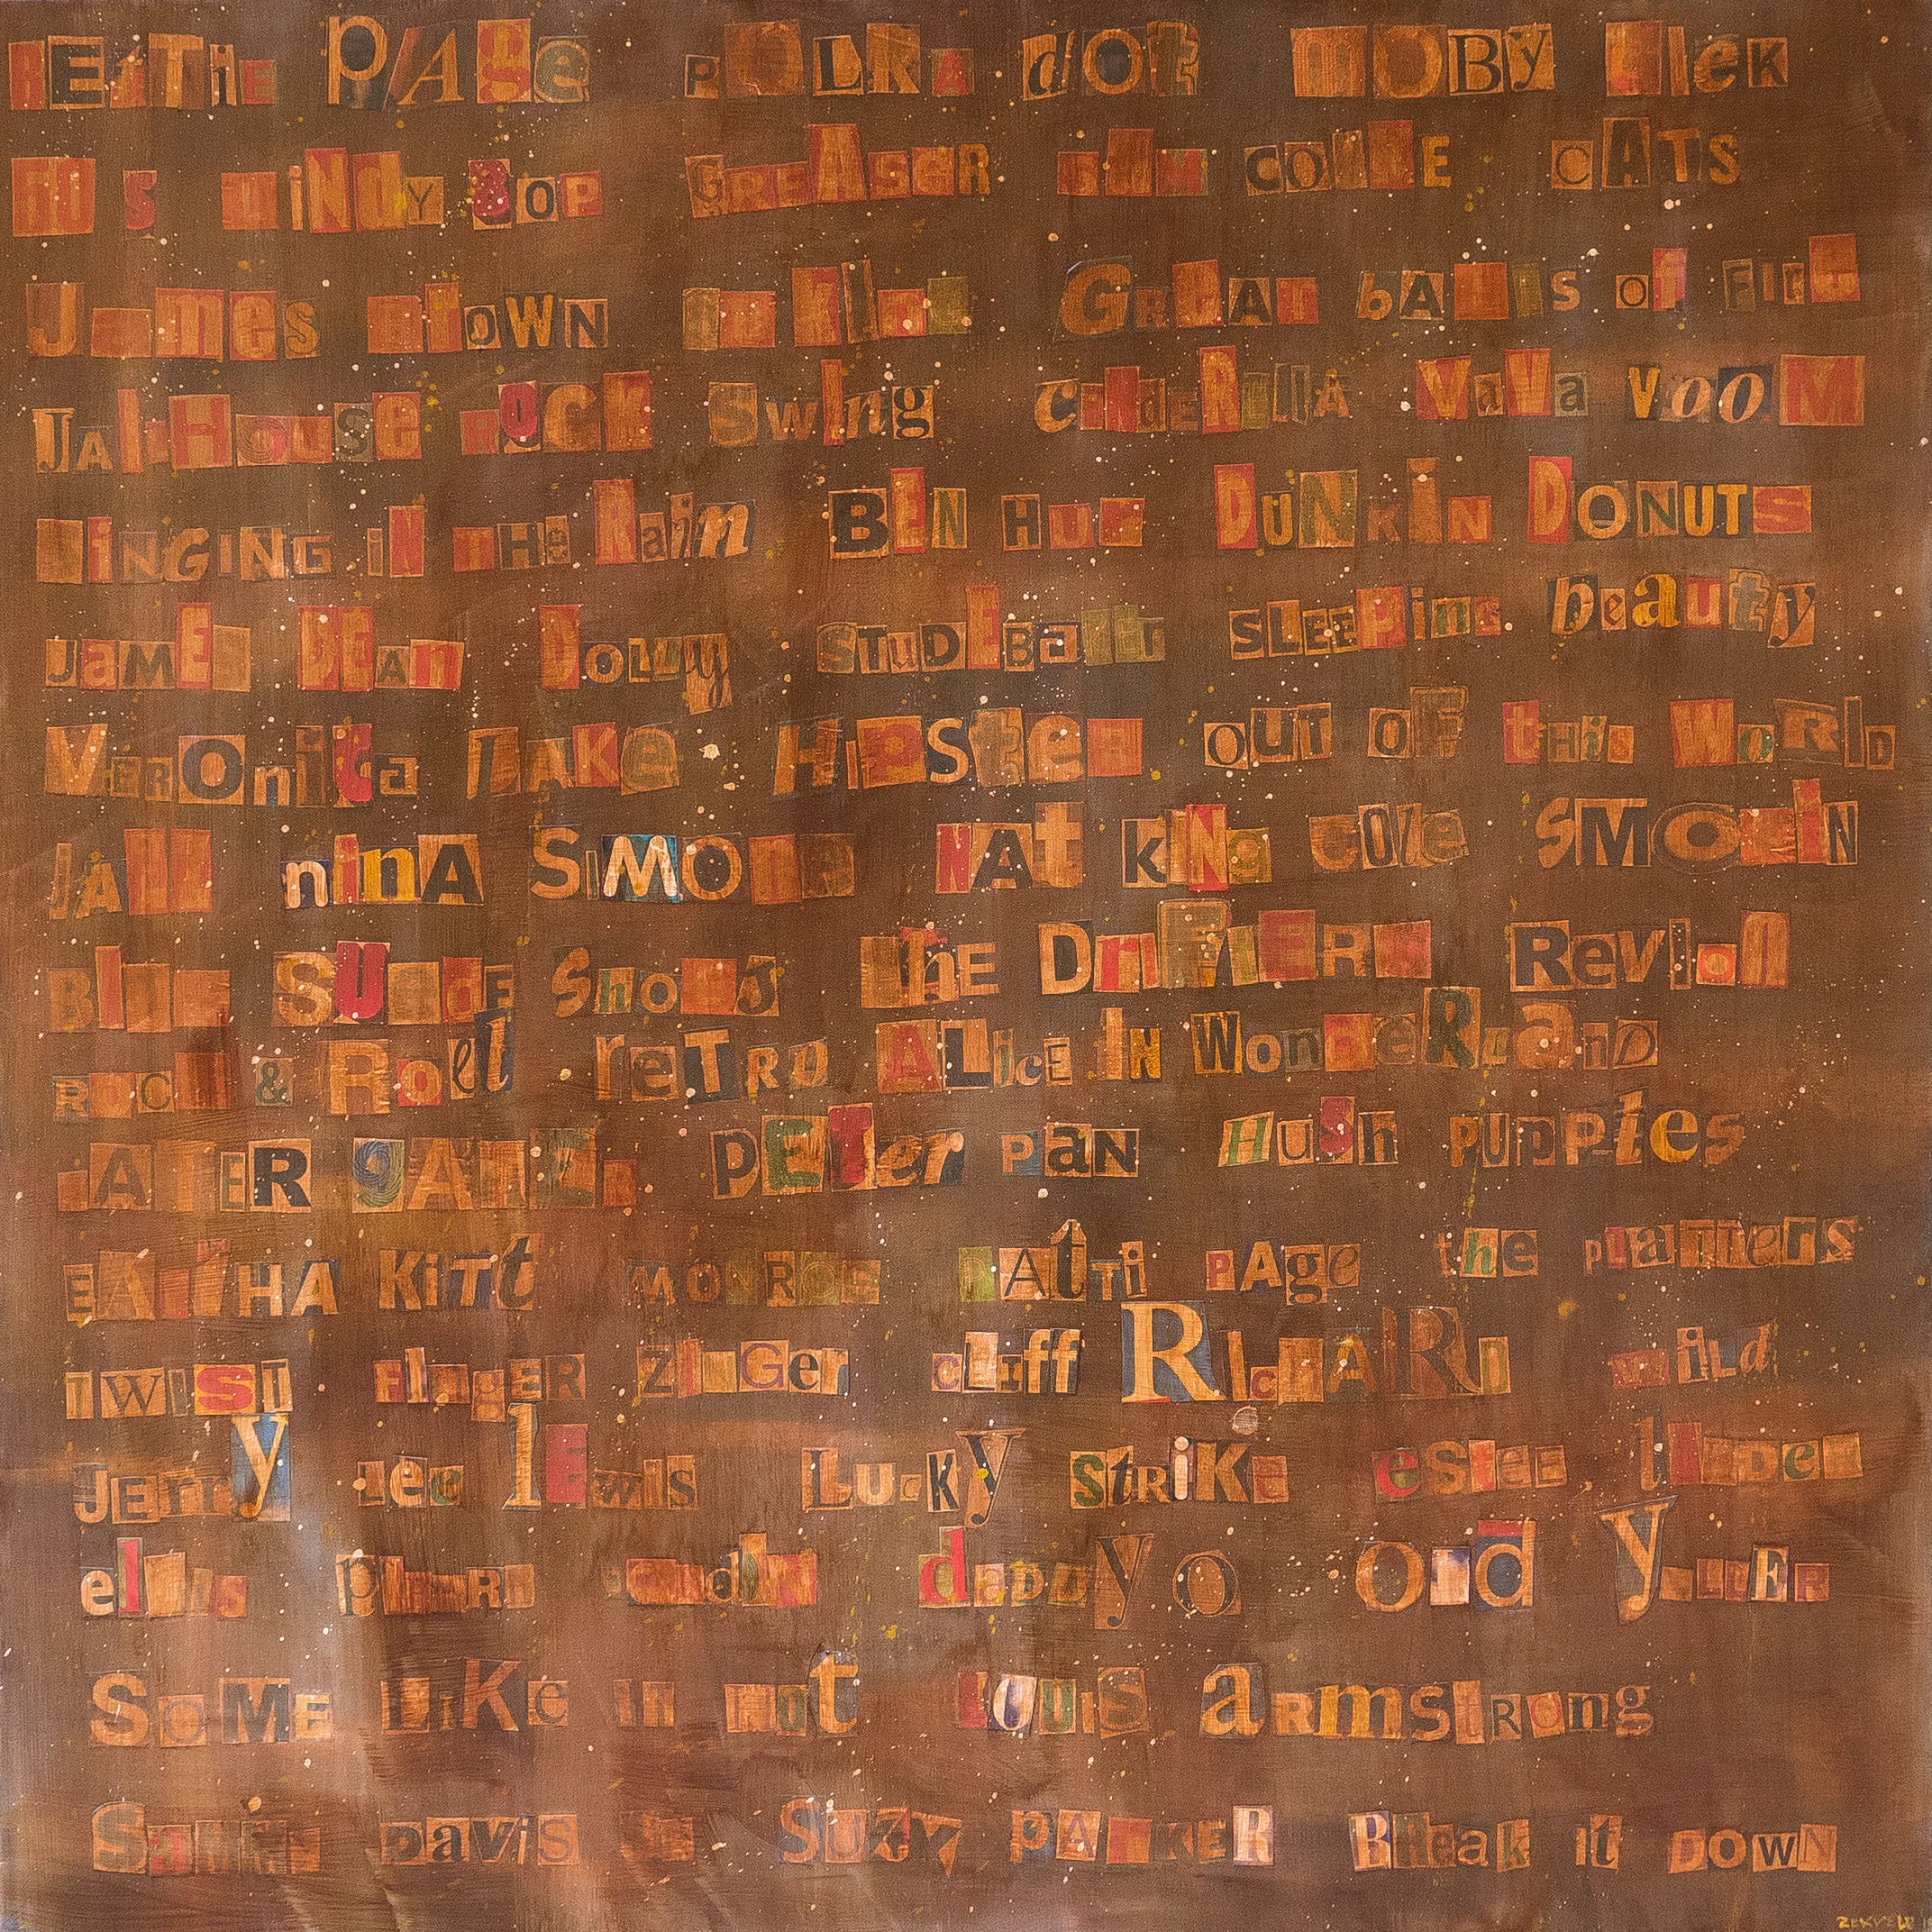 BETTIE PAge POLKA dOt MOBY DIcK
FiDS MiNDY BOP GREASER SAM COOKE CATS
James BROWN Great bALLs of FIRE
JAILHOUSE ROCK SWIng CINDERELLA VaVa VooM
SINGING iN THe Rain BEN HUR DUNKIN DONUTS
JaMES DEAn DOLLY STUDEBaKER SLEEPing beauty
VEROnica LAKE HiPSteR OUT OF tHis WoRlD
JAZZ ninA SiMOne NAt KiNg COle SMOKIN
Blue SUedE ShoeS tHE DriFTERS Revlon
ROCK & Roll reTRO ALicE IN WonDeRLanD
LATER gATOR PETer PaN HuSh PUPPies
EARTHA KiTt MORRIS PAtTi PAge thE PLaTTerS
TWIST FInGER ZInGer CLiff RIcHARD WILd
JErry Lee lEwis LUcKy StRiKe eStEE LAUDER
elvis daddyo Old YELLER
SOME LiKe IT Hot LOUIS aRmSTRong
Sammy DAViS JR SUZY PARKER BReak it DOWN